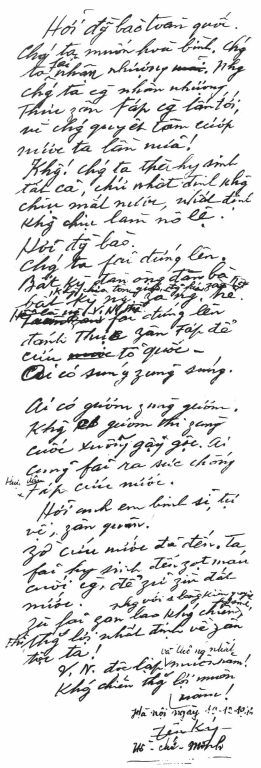 Hỡi đg bào toàn quốc.
Chg ta muốn hoà bình, chg
ta fải nhân nhượng. Nhg
chg ta cg nhân nhượng
thực zân Fáp cg lấn tới,
vì chg quyết tâm cướp
nước ta lần nữa!
Khg! chg ta thà hy sinh
tất cả, chứ nhất định khg
chịu mất nước, nhất định
khg chịu làm nô lệ.
Hỡi đg bào.
Chg ta fải đứng lên.
Bất kỳ đàn ông đàn bà,
bất kỳ ng già ng trẻ.
fải đứng lên
đánh thực zân Fáp để
cứu tổ quốc –
Ai có súng zùng súng.
Ai có gươm zùng gươm.
Khg có gươm thì zùng
cuốc xuổng gậy gộc. Ai
cũng fải ra sức chống
Fáp cứu nước.
Hỡi anh em binh sĩ, tự
vệ, zân quân.
Zờ cứu nước đã đến. Ta
fải hy sinh đến zọt máu
cuối cg, để zữ zìn đất
nước.
Zù fải zan lao khg chiến,
thg lợi nhất định về zân
tộc ta!
V.N. độc lập và thống nhất muôn năm!
Khg chiến thg lợi muôn
năm!
Hà nội ngày
Hồ-chí-Minh